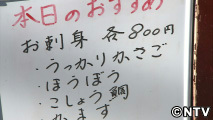 本日のおすすめ
お刺身 各800円
・うっかりかさご
・ほうぼう
・こしょう鯛
・かます
©NTV